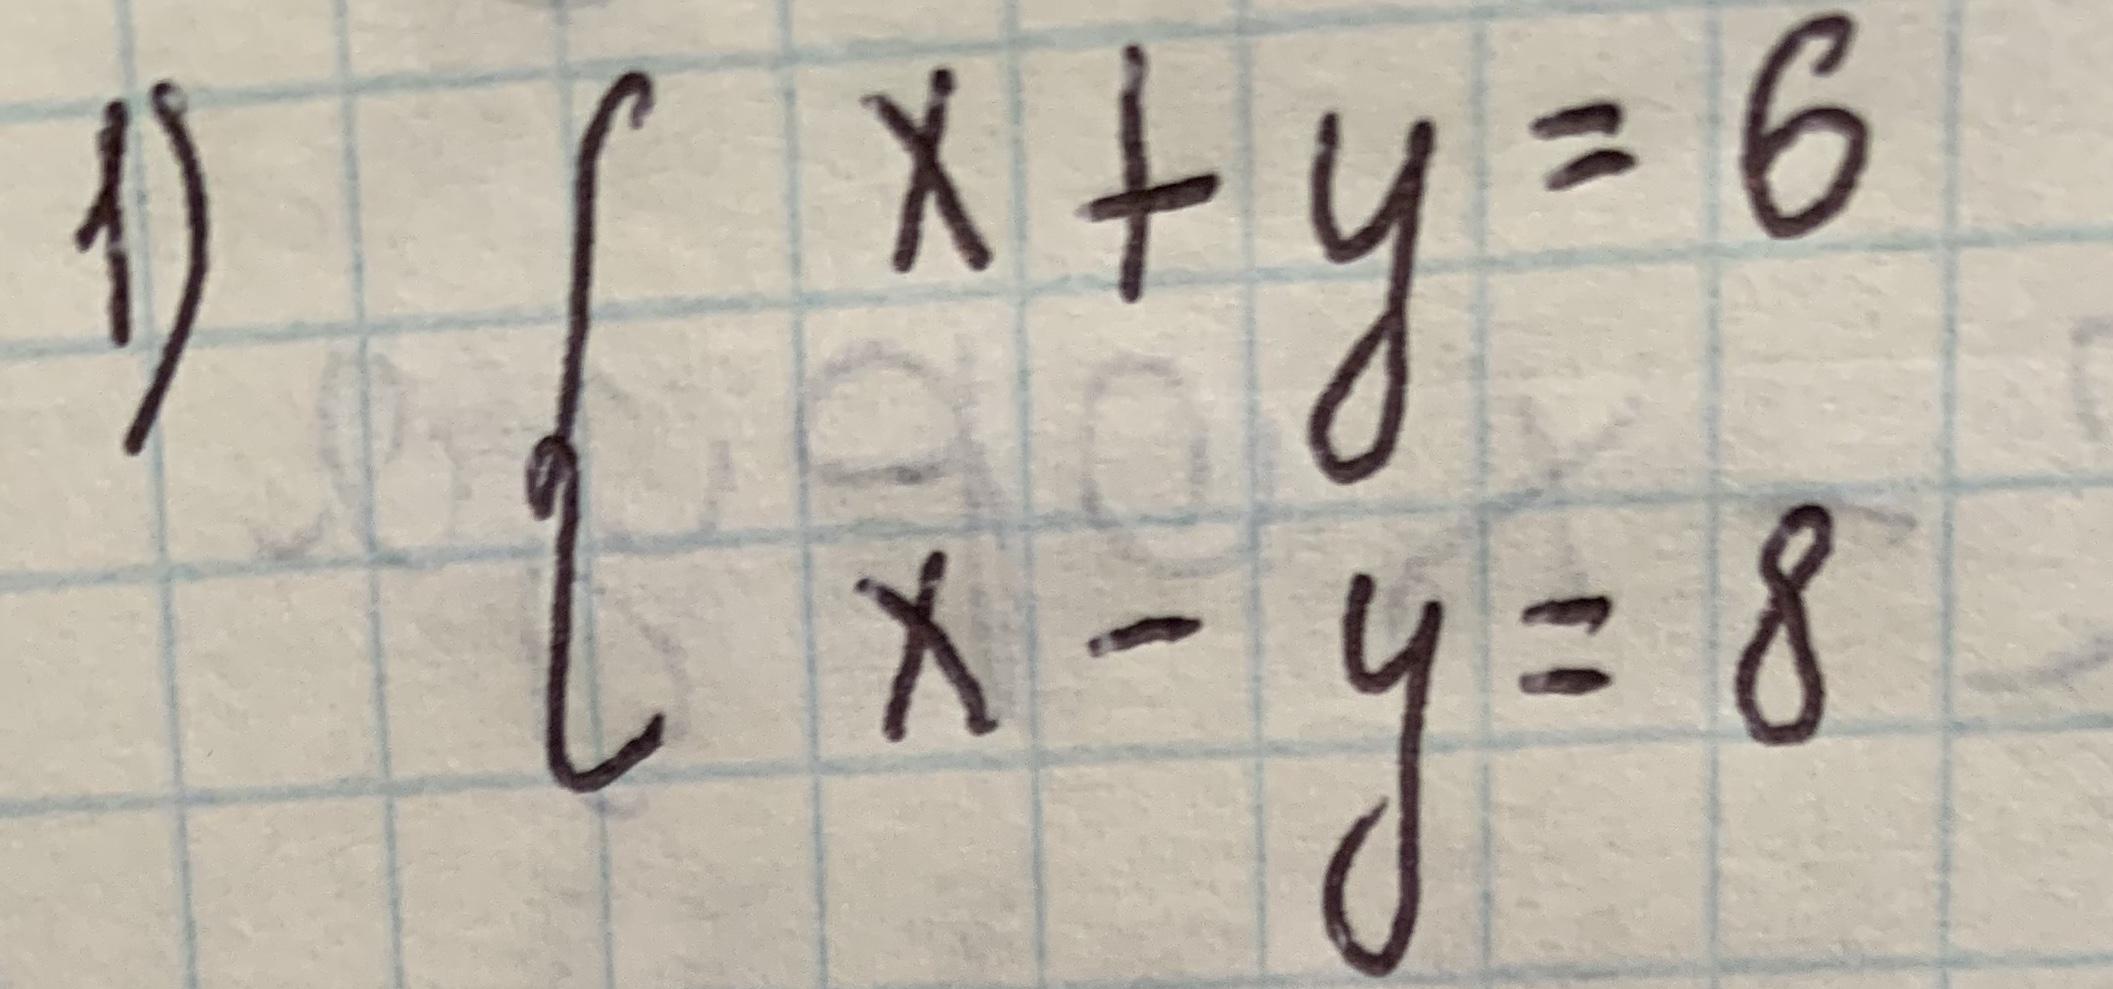 1) { x + y = 6
x - y = 8